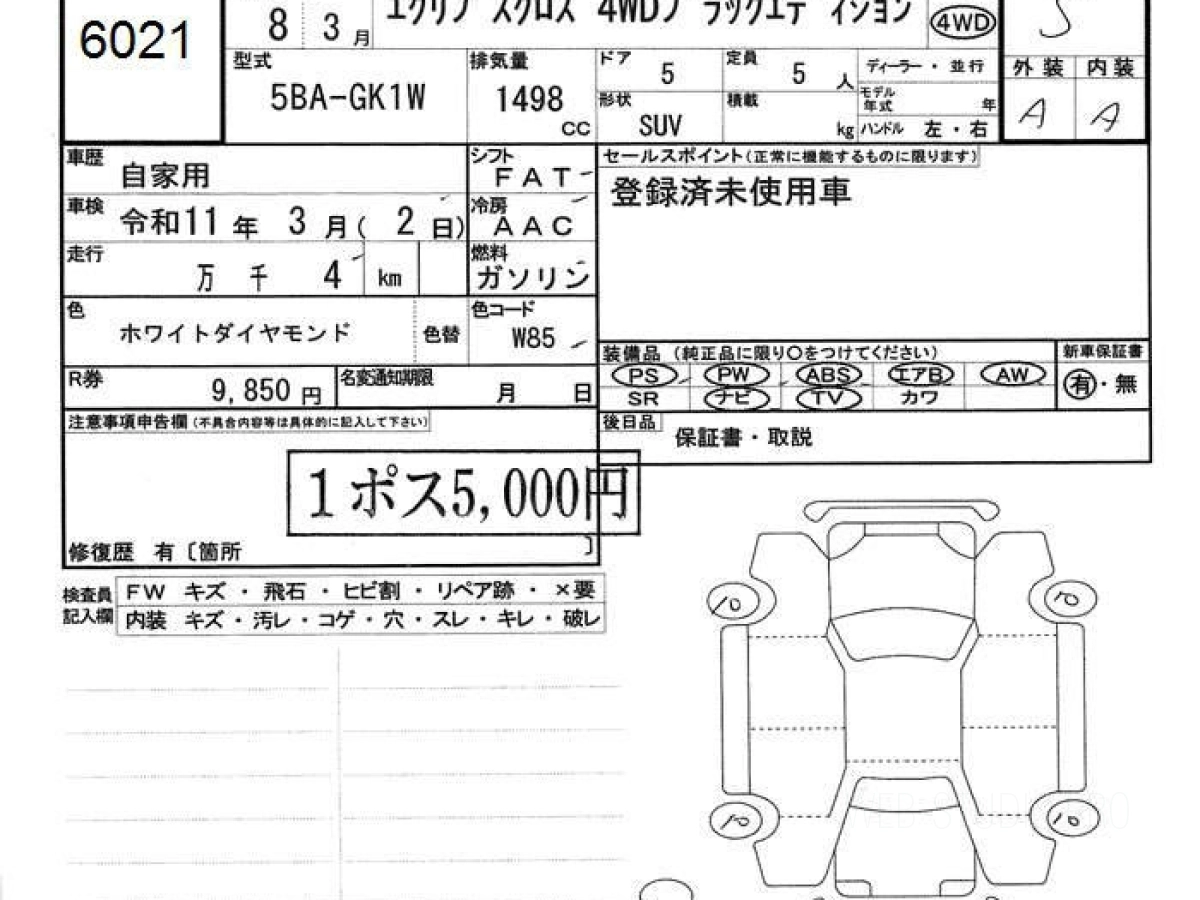 6021
8 3 月
エクリプスクロス 4WDブラックエディション
4WD
S
型式
5BA-GK1W
排気量
1498
CC
ドア
5
定員
5 人
形状
SUV
積載
kg
ディーラー・並行
モデル年式 年
ハンドル 左・右
外装 内装
A A
車歴
自家用
シフト
FAT
車検
令和11年 3月( 2日)
冷房
AAC
走行
万 千 4 km
燃料
ガソリン
色
ホワイトダイヤモンド
色替
色コード
W85
R券
9,850 円
名変通知期限
月 日
セールスポイント(正常に機能するものに限ります)
登録済未使用車
装備品 (純正品に限り〇をつけてください)
PS PW ABS エアB AW
SR ナビ TV カワ
新車保証書
有・無
後日品
保証書・取説
注意事項申告欄(不具合内容等は具体的に記入して下さい)
1ポス5,000円
修復歴 有〔箇所 〕
検査員記入欄
FW キズ・飛石・ヒビ割・リペア跡・×要
内装 キズ・汚レ・コゲ・穴・スレ・キレ・破レ
10 10
10 10